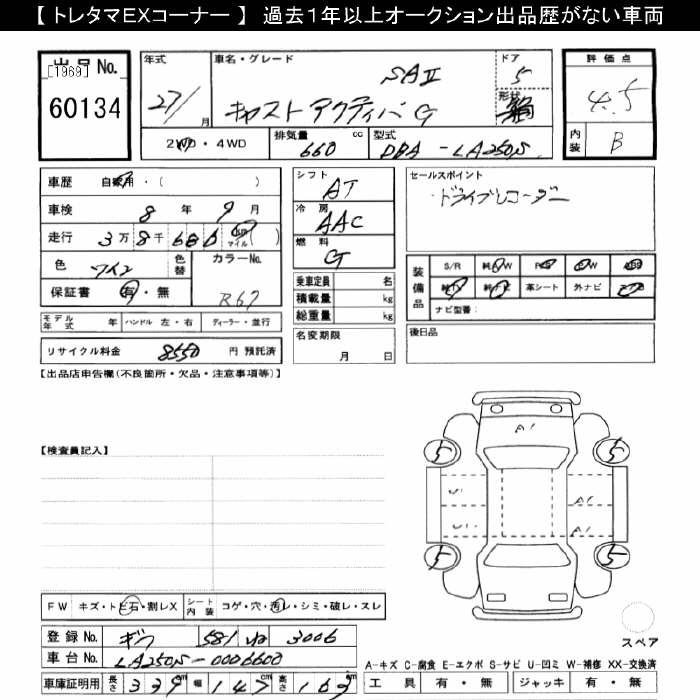 【 トレタマEXコーナー 】 過去1年以上オークション出品歴がない車両
出品No.
[1969]
60134
年式 27/ 月
車名・グレード SAⅡ
キャスト アクティバ G
ドア 5
形状
評価点
4.5
内装 B
2WD・4WD
排気量 660 cc
型式 DBA-LA250S
車歴 自家用・( )
車検 8 年 9 月
走行 3万 8千 686 km マイル ( )
色 ワイン 色替 カラーNo. R67
保証書 有・無
モデル年式 年 ハンドル 左・右 ディーラー・並行
リサイクル料金 8550 円 預託済
シフト AT
冷房 AAC
燃料 G
乗車定員 名
積載量 kg
総重量 kg
名変期限
月 日
セールスポイント
・ドライブレコーダー
装備品 S/R 純AW P/S P/W
純TV 純ナビ 革シート 外ナビ
ナビ型番:
後日品
【出品店申告欄(不良箇所・欠品・注意事項等)】
【検査員記入】
A1
5 5
U1 A1
U1 A1
5 5
スペア
FW キズ・トビ石・割レX シート内装 コゲ・穴・汚レ・シミ・破レ・スレ
登録 No. ギフ 581 ね 3006
車台 No. LA250S-0006600
車庫証明用 長さ 339 cm 幅 147 cm 高さ 162 cm
A-キズ C-腐食 E-エクボ S-サビ U-凹ミ W-補修 XX-交換済
工具 有・無 ジャッキ 有・無